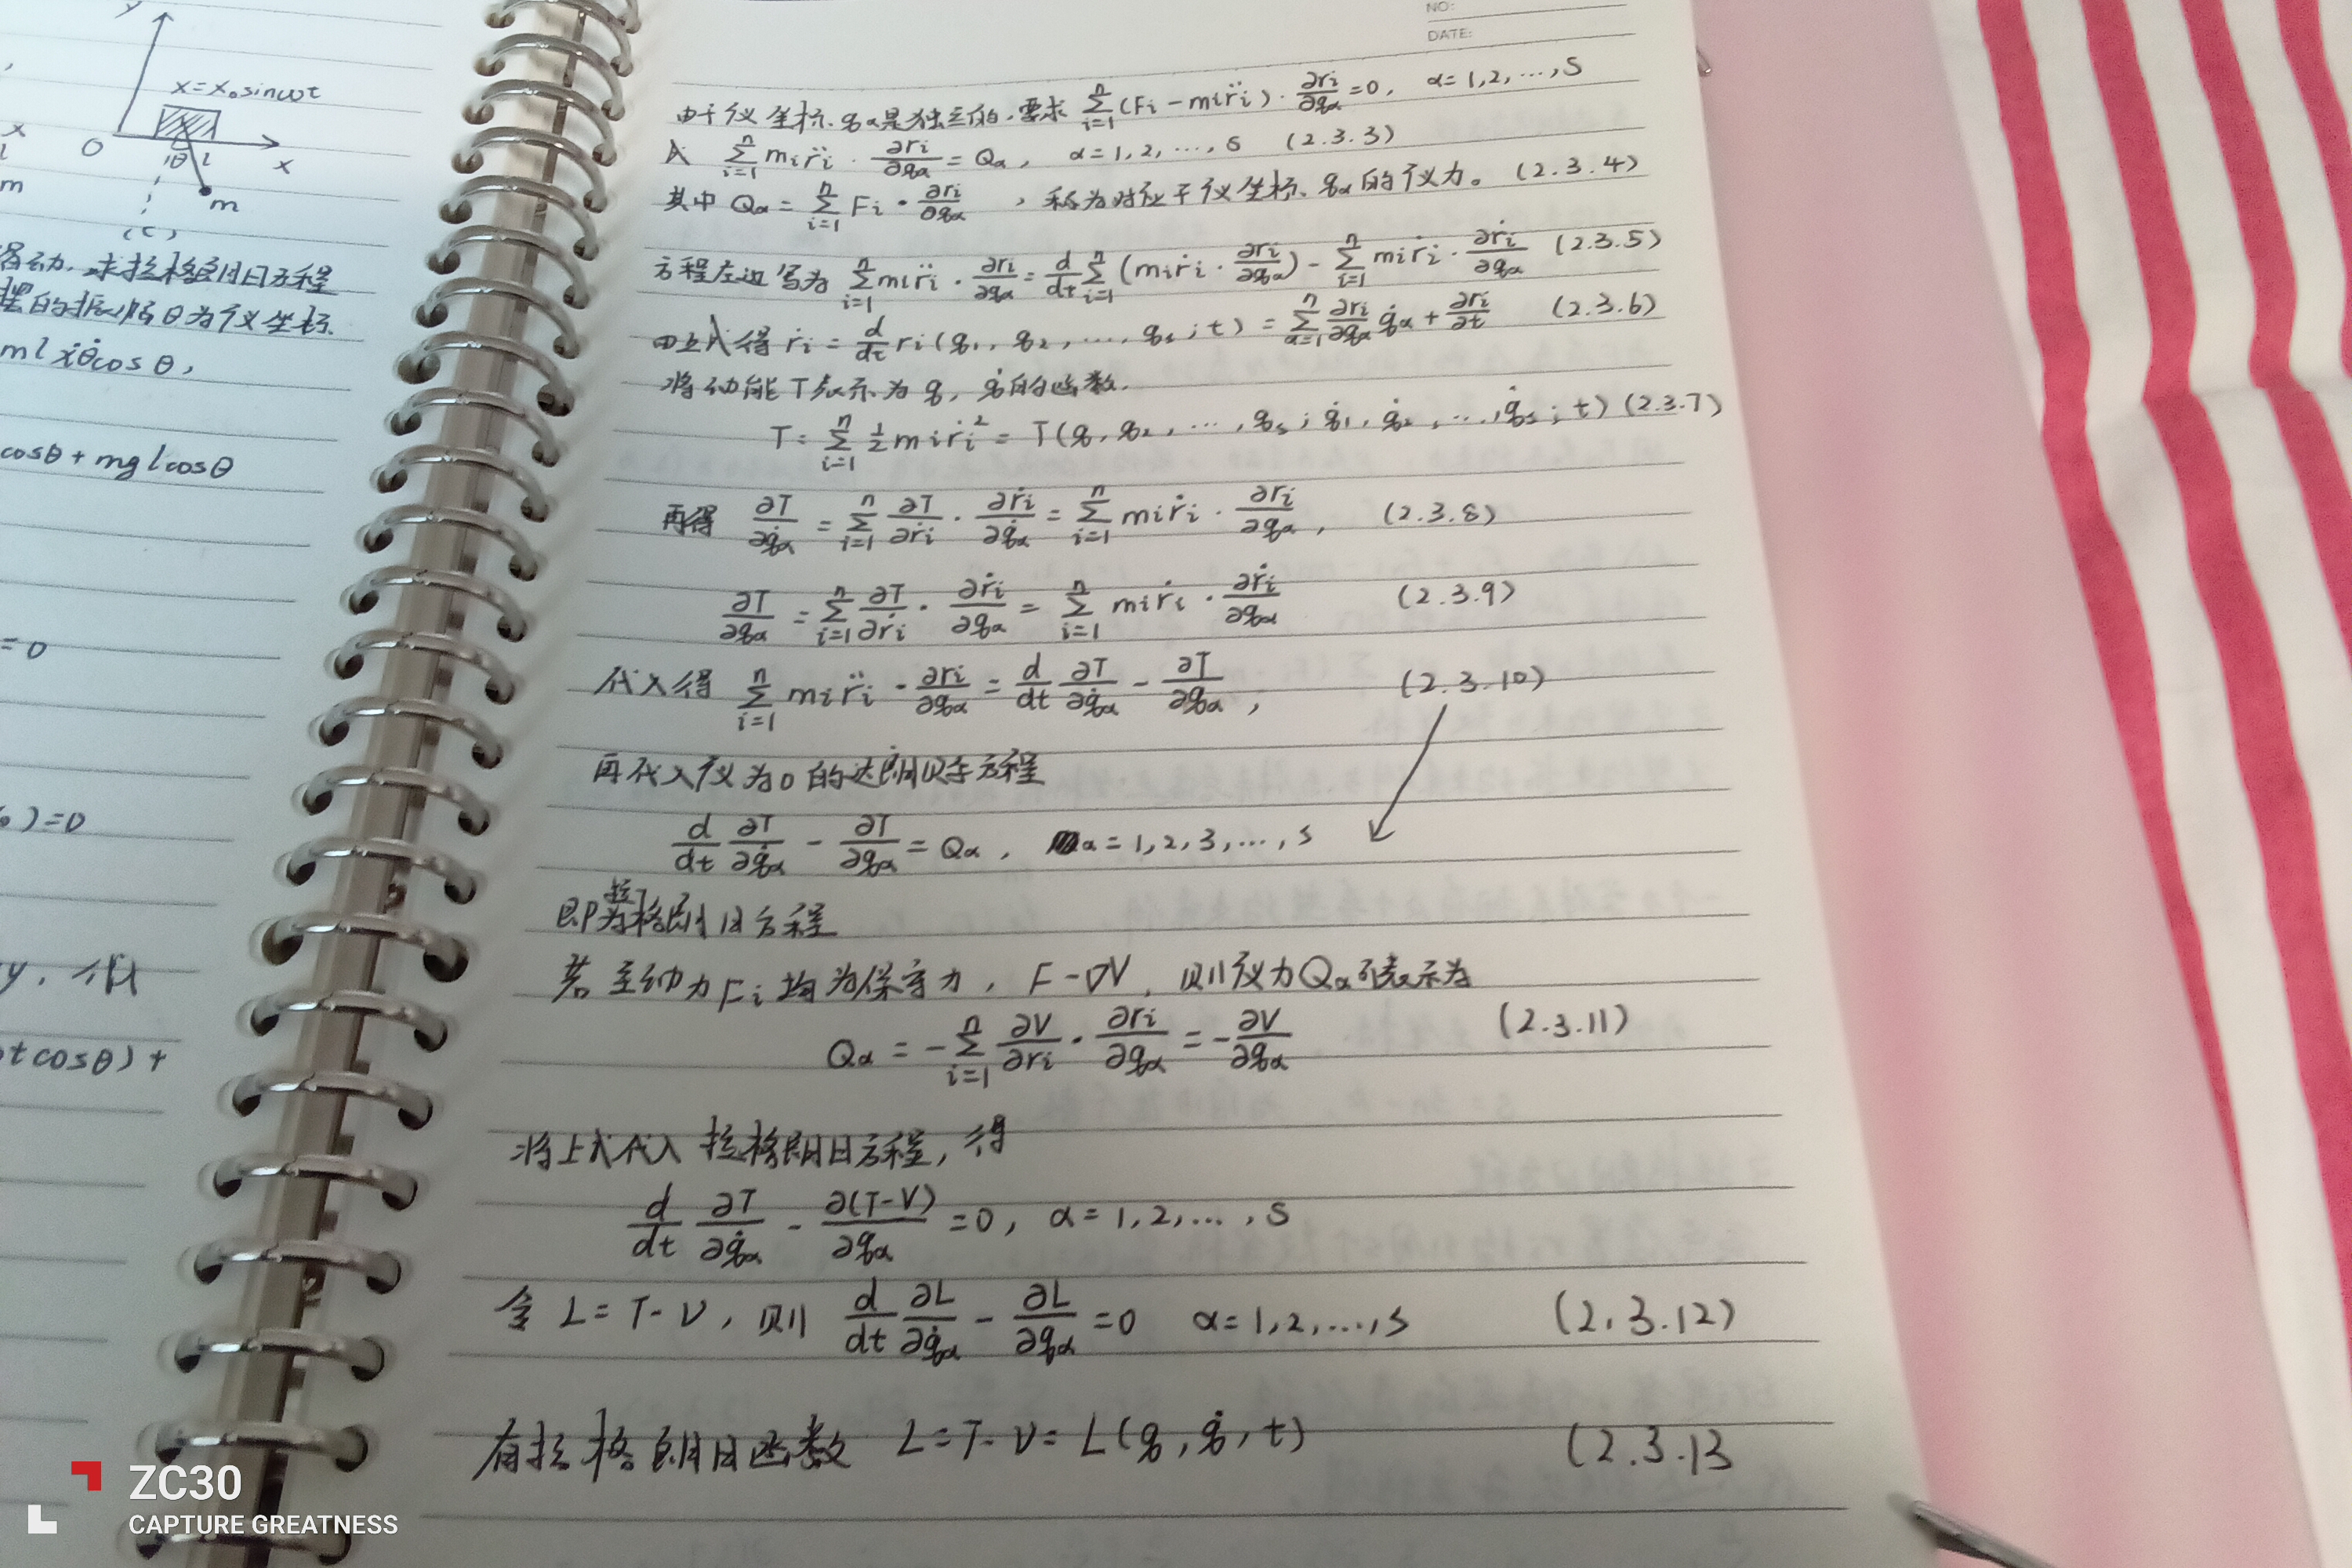 y
x=x₀sinωt
O
θ
l
x
m
(c)
求拉格朗日方程
θ为仪坐标.
mlẋθ̇cosθ,
cosθ+mglcosθ
=0
)=0
y.
tcosθ)+
NO:
DATE:
由于仪坐标qα是独立的.要求 Σ_{i=1}^{n}(Fi-mir̈i)·∂ri/∂qα=0, α=1,2,…,S
Σ_{i=1}^{n} mir̈i·∂ri/∂qα=Qα, α=1,2,…,S (2.3.3)
其中 Qα=Σ_{i=1}^{n} Fi·∂ri/∂qα,称为对应于仪坐标qα的仪力。(2.3.4)
方程左边写为 Σ_{i=1}^{n} mir̈i·∂ri/∂qα=d/dt Σ_{i=1}^{n}(miṙi·∂ri/∂qα)-Σ_{i=1}^{n} miṙi·∂ṙi/∂qα (2.3.5)
由上式得 ṙi=d/dt ri(q₁,q₂,…,qs;t)=Σ_{α=1}^{n} ∂ri/∂qα q̇α+∂ri/∂t (2.3.6)
将动能T表示为q,q̇的函数.
T=Σ_{i=1}^{n} ½miṙi²=T(q,q₂,…,qs;q̇₁,q̇₂,…,q̇s;t) (2.3.7)
再得 ∂T/∂q̇α=Σ_{i=1}^{n} ∂T/∂ṙi·∂ṙi/∂q̇α=Σ_{i=1}^{n} miṙi·∂ri/∂qα, (2.3.8)
∂T/∂qα=Σ_{i=1}^{n} ∂T/∂ṙi·∂ṙi/∂qα=Σ_{i=1}^{n} miṙi·∂ṙi/∂qα (2.3.9)
代入得 Σ_{i=1}^{n} mir̈i·∂ri/∂qα=d/dt ∂T/∂q̇α-∂T/∂qα, (2.3.10)
再代入仪为0的达朗贝尔方程
d/dt ∂T/∂q̇α-∂T/∂qα=Qα, α=1,2,3,…,s
即为拉格朗日方程
若主动力Fi均为保守力,F-∇V,则仪力Qα可表示为
Qα=-Σ_{i=1}^{n} ∂V/∂ri·∂ri/∂qα=-∂V/∂qα (2.3.11)
将上式代入拉格朗日方程,得
d/dt ∂T/∂q̇α-∂(T-V)/∂qα=0, α=1,2,…,S
令 L=T-V,则 d/dt ∂L/∂q̇α-∂L/∂qα=0 α=1,2,…,s (2.3.12)
有拉格朗日函数 L=T-V=L(q,q̇,t) (2.3.13
ZC30
CAPTURE GREATNESS